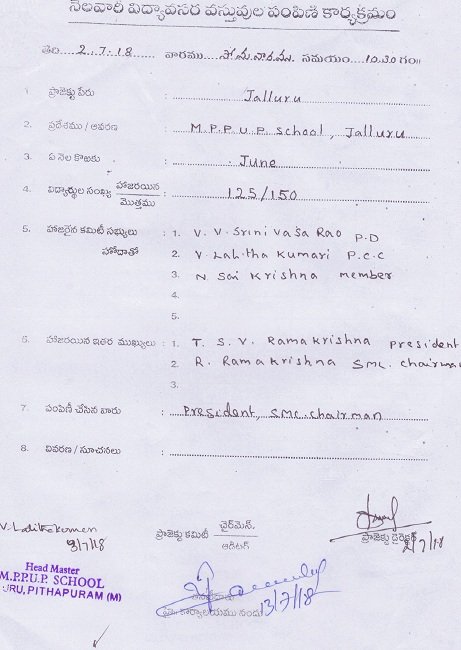 నెలవారి విద్యావసర వస్తువుల పంపిణి కార్యక్రమం
తేది 2.7.18 వారము సోమవారము సమయం 10.30 గం॥
1. ప్రాజెక్టు పేరు : Jalluru
2. ప్రదేశము / ఆవరణ : M.P.P.U.P. School, Jalluru
3. ఏ నెల కొఱకు : June
4. విద్యార్థుల సంఖ్య హాజరయిన / మొత్తము : 125/150
5. హాజరైన కమిటీ సభ్యులు : 1. V. V. Srinivasa Rao P.D
హోదాతో 2. V. Lalitha Kumari P.C.C
3. N. Sai Krishna member
4.
5.
6. హాజరయిన ఇతర ముఖ్యులు : 1. T. S. V. Ramakrishna President
2. R. Ramakrishna SMC. Chairman
3.
7. పంపిణీ చేసిన వారు : President, SMC. chairman
8. వివరణ / సూచనలు :
V. Lalithakumari
ప్రాజెక్టు కమిటీ చైర్‌మెన్, / ఆడిటర్
ప్రాజెక్టు డైరెక్టర్
/7/18
/7/18
Head Master
M.P.P.U.P. SCHOOL
URU, PITHAPURAM (M)
13/7/18
కార్యాలయము నందు